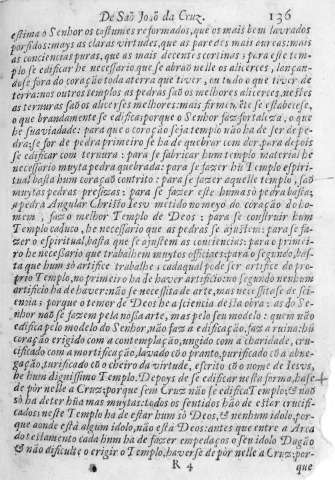 De São João da Cruz. 136
estima o Senhor os costumes reformados, que os mais bem lavrados
porfidos: mays as claras virtudes, que as paredes mais oureas: mais
as conciencias puras, que as mais decentes cortinas: para este tem-
plo se edificar he necessario, que se abrão nelle os alicerces, lançan-
dose fora do coração toda a terra que tiver, ou tudo o que tiver de
terra: nos outros templos as pedras saõ os melhores alicerces, nestes
as ternuras saõ os alicerses melhores: mais firmente se estabelese,
o que brandamente se edifica: porque o Senhor faz fortaleza, o que
he suavidade: para que o coração seja templo não ha de ser de pe-
dra: se for de pedra primeiro se ha de quebrar com dor, para depois
se edificar com ternura: para se fabricar hum templo material he
necessario muyta pedra quebrada: para se fazer hũ Templo espiri-
tual basta hum coração contrito: para se fazer aquelle templo, saõ
muytas pedras presizas: para se fazer este huma só pedra basta;
a pedra Angular Christo Iesu metido no meyo do coração do ho-
mem, faz o melhor Templo de Deos: para se construir hum
Templo caduco, he necessario que as pedras se ajustem: para se fa-
zer o espiritual, basta que se ajustem as conciencias: para o primei-
ro he necessario que trabalhem muytos officiaes: para o segundo, bas-
ta que hum só artifice trabalhe: cada qual pode ser artifice do pro-
prio Templo, no primeiro ha de haver artificio: no segundo nenhum
artificio ha de haver: não se necessita de arte, mas necessitase de sci-
encia: porque o temor de Deos he a sciencia desta obra: as do Se-
nhor naõ se fazem pela nossa arte, mas pelo seu modelo: quem não
edifica pelo modelo do Senhor, não faz a edificação, faz a ruina: hũ
coração erigido com a contemplação, ungido com a charidade, cruci-
ficado com a mortificação, lavado cõ o pranto, purificado cõ a abne-
gação, turificado cõ o cheiro da virtude, escrito cõ o nome de Iesus,
he hum dignissimo Templo. Depoys de se edificar nesta forma, hase
de pòr nelle a Cruz: porque sem Cruz não se edifica Templo; & não
só ha de deter hũa mas muytas: todos os sentidos hão de estar crucifi-
cados: neste Templo ha de estar hum só Deos, & nenhum idolo, por-
que aonde està algum idolo, não està Deos: antes que entre a Arca
do testamento cada hum ha de fazer em pedaços o seu idolo Dagão
& não dificulte o erigir o Templo, haverse de pòr nelle a Cruz: por-
R 4 que